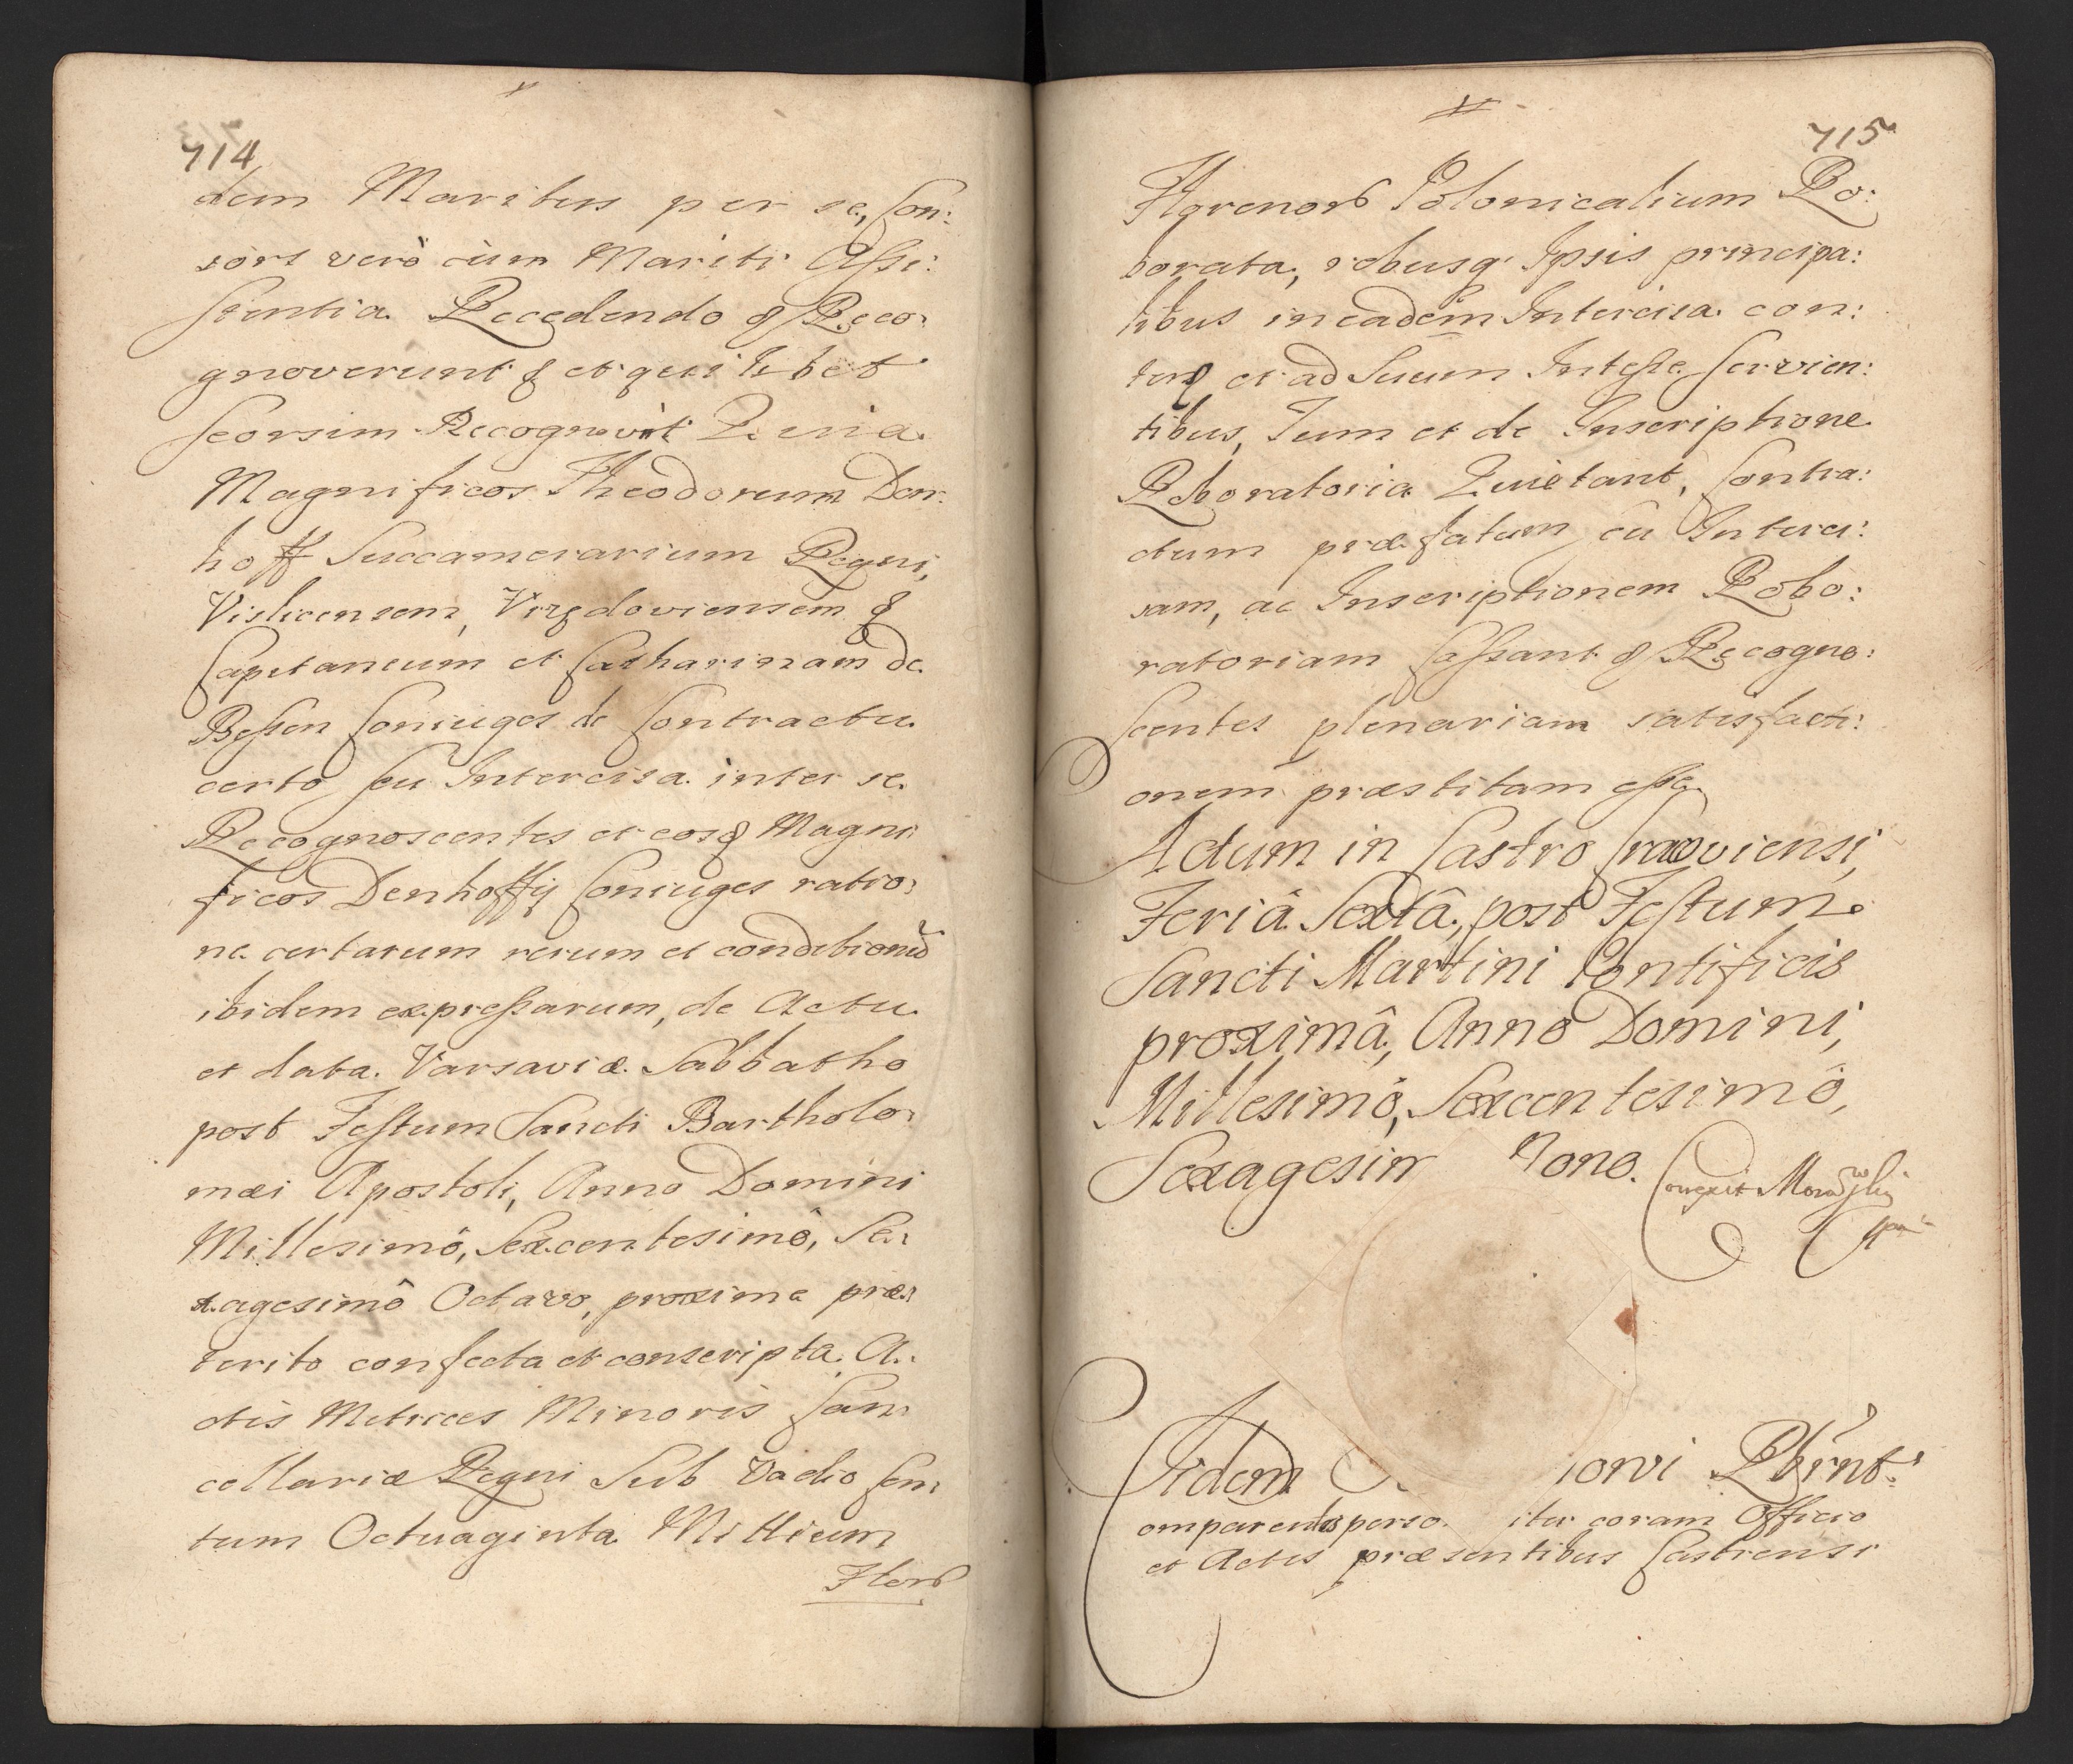 714
dem Maritus per se, Con:
sors verò cum Mariti Assi:
stentia Recedendo & Reco:
gnoverunt & et quilibet
seorsim Recognovit Quia
Magnificos Theodorum Den:
hoff Succamerarium Regni,
Vislicensem, &
Capitaneum et Catharinam de
Bessen Coniuges de Contractu
certo seu Intercisa inter se
Recognoscentes et eosq Magni
ficos Denhoffy Coniuges ratio:
ne certarum rerum et conditionũ
ibidem expressarum, de Actu
et data Varsaviæ Sabbatho
post Festum Sancti Bartholo:
mæi Apostoli, Anno Domini
Millesimô, Sexcentesimô, Se:
xagesimô Octavo, proxime præ:
terito confecta et conscripta A:
ctis Metrices Minoris Can:
cellariæ Regni Sub Vadio Cen:
tum Octuaginta Millium
Flor
715
Polonicalium Ro:
borata, rebusq Ipsis principa:
libus in eadem Intercisa con:
tent et ad Suum Intesse servien:
tibus, Tum et de Inscriptione
Roboratoria Quietant, Contra:
ctum præfatum cũ Interci:
sam, ac Inscriptionem Robo:
ratoriam Cassant & Recogno:
scentes plenariam satisfacti:
onem præstitam esse
Actum in Castro Cracoviensi,
Feriâ Sextâ, post Festum
Sancti Martini Pontificis
proximâ, Anno Domini,
Millesimô, Sexcentesimô,
Sexagesim Nono.
Correxit
Iidem
omparentes perso iter coram Officio
et Actis præsentibus Castrensi